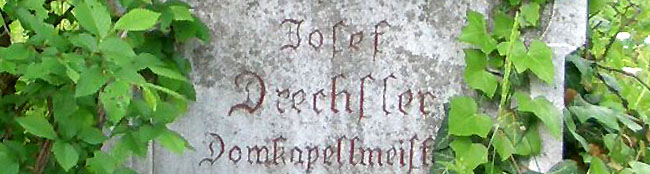 Josef
Drechsler
Domkapellmeist